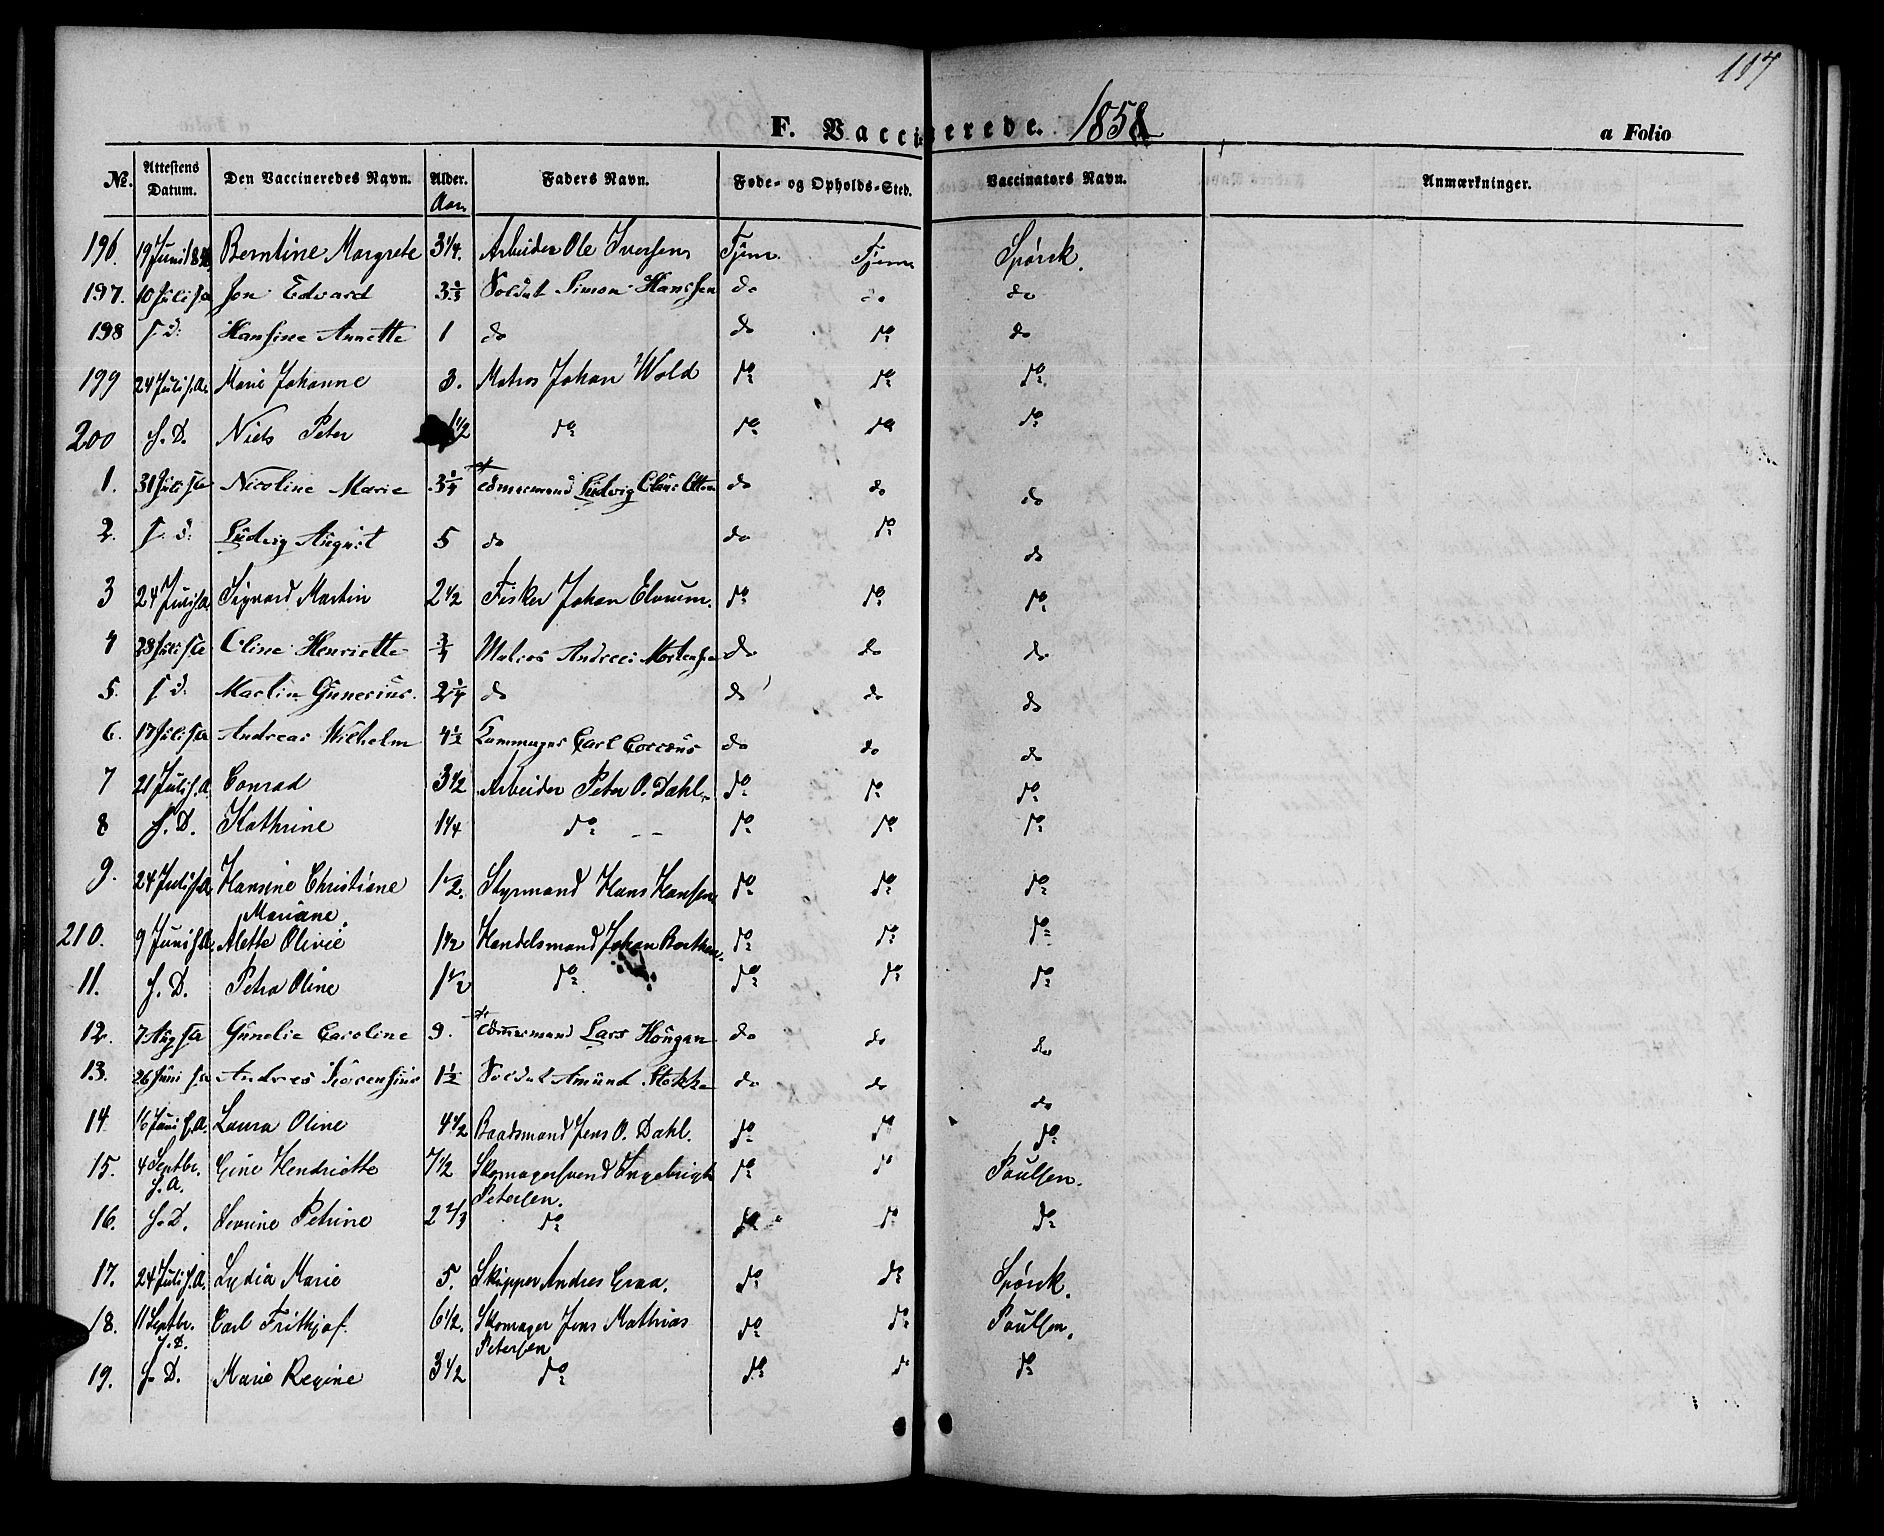 117
F. Vaccinerede. 1858
a Folio
No. Attestens Datum. Den Vaccineredes Navn. Alder. Aar Faders Navn. Føde- og Opholds-Sted. Vaccinators Navn. Anmærkninger.
196. 19 Juni 1858 Berntine Margrete 3 1/4. Arbeider Ole Iversen Tjern. Tjern Spørck.
197. 10 Juli s a Jon Edvard 3 Soldat Simon Hanssen do do do
198 s. d. Hansine Annette 1 do do do do
199 24 Juli s. A. Marie Johanne 3. Matros Johan Wold do do do
200 s. D. Niels Peter 1 1/2 do do do do
1. 31 Juli s a Nicoline Marie 3 1/4 Tømmermand Ludvig Claus do do do
2. s. d. Ludvig August 5 do do do do
3 24 Juni s a Sigvard Martin 2 1/2 Fisker Johan Elvrum. do do do
4 28 Juli s a Oline Henriette 3/4 Matros Andreas Mortensen do do do
5. s d. Martin Gunerius. 2 1/4 do do do do
6. 17 Juli s a Andreas Wilhelm 4 1/2 Carl do do do
7 21 Juli s. A. Conrad 3 1/2 Arbeider Peter O. Dahl. do do do
8 s. D. Kathrine 1 1/4 do do do do
9. 24 Juli s. A. Hansine Christiane 1 1/2. Styrmand Hans Hansen do do do
Mariane.
210. 9 Juni s. A. Alette Olivie 1 1/2 Handelsmand Johan Borthen. do do do
11. s. D. Petra Oline 1 1/2 do do do do
12. 7 Aug s a Gunelie Caroline 9. Tømmermand Lars Haugan do do do
13. 26 Juni s a Andreas Sørensius 1 1/2 Soldat Amund Stokke do do do
14 16 Juni s. A. Laura Oline 4 1/2 Baadsmand Jens O. Dahl. do do do
15. 4 Septbr. Gine Hendriette 7 1/2 Skomagersvend Ingebrigt do do Poulsen.
s. A. Petersen.
16. s. D. Petrine 2 2/3 do do do do
17. 24 Juli s. A. Lydia Marie 5. Skipper Andres Graa. do do Spørck.
18. 11 Septbr. Carl Frithjof. 6 1/2. Skomager Jens Mathias do do Poulsen.
s. D. Petersen
19. s. D. Marie Regine 3 1/2 do do do do